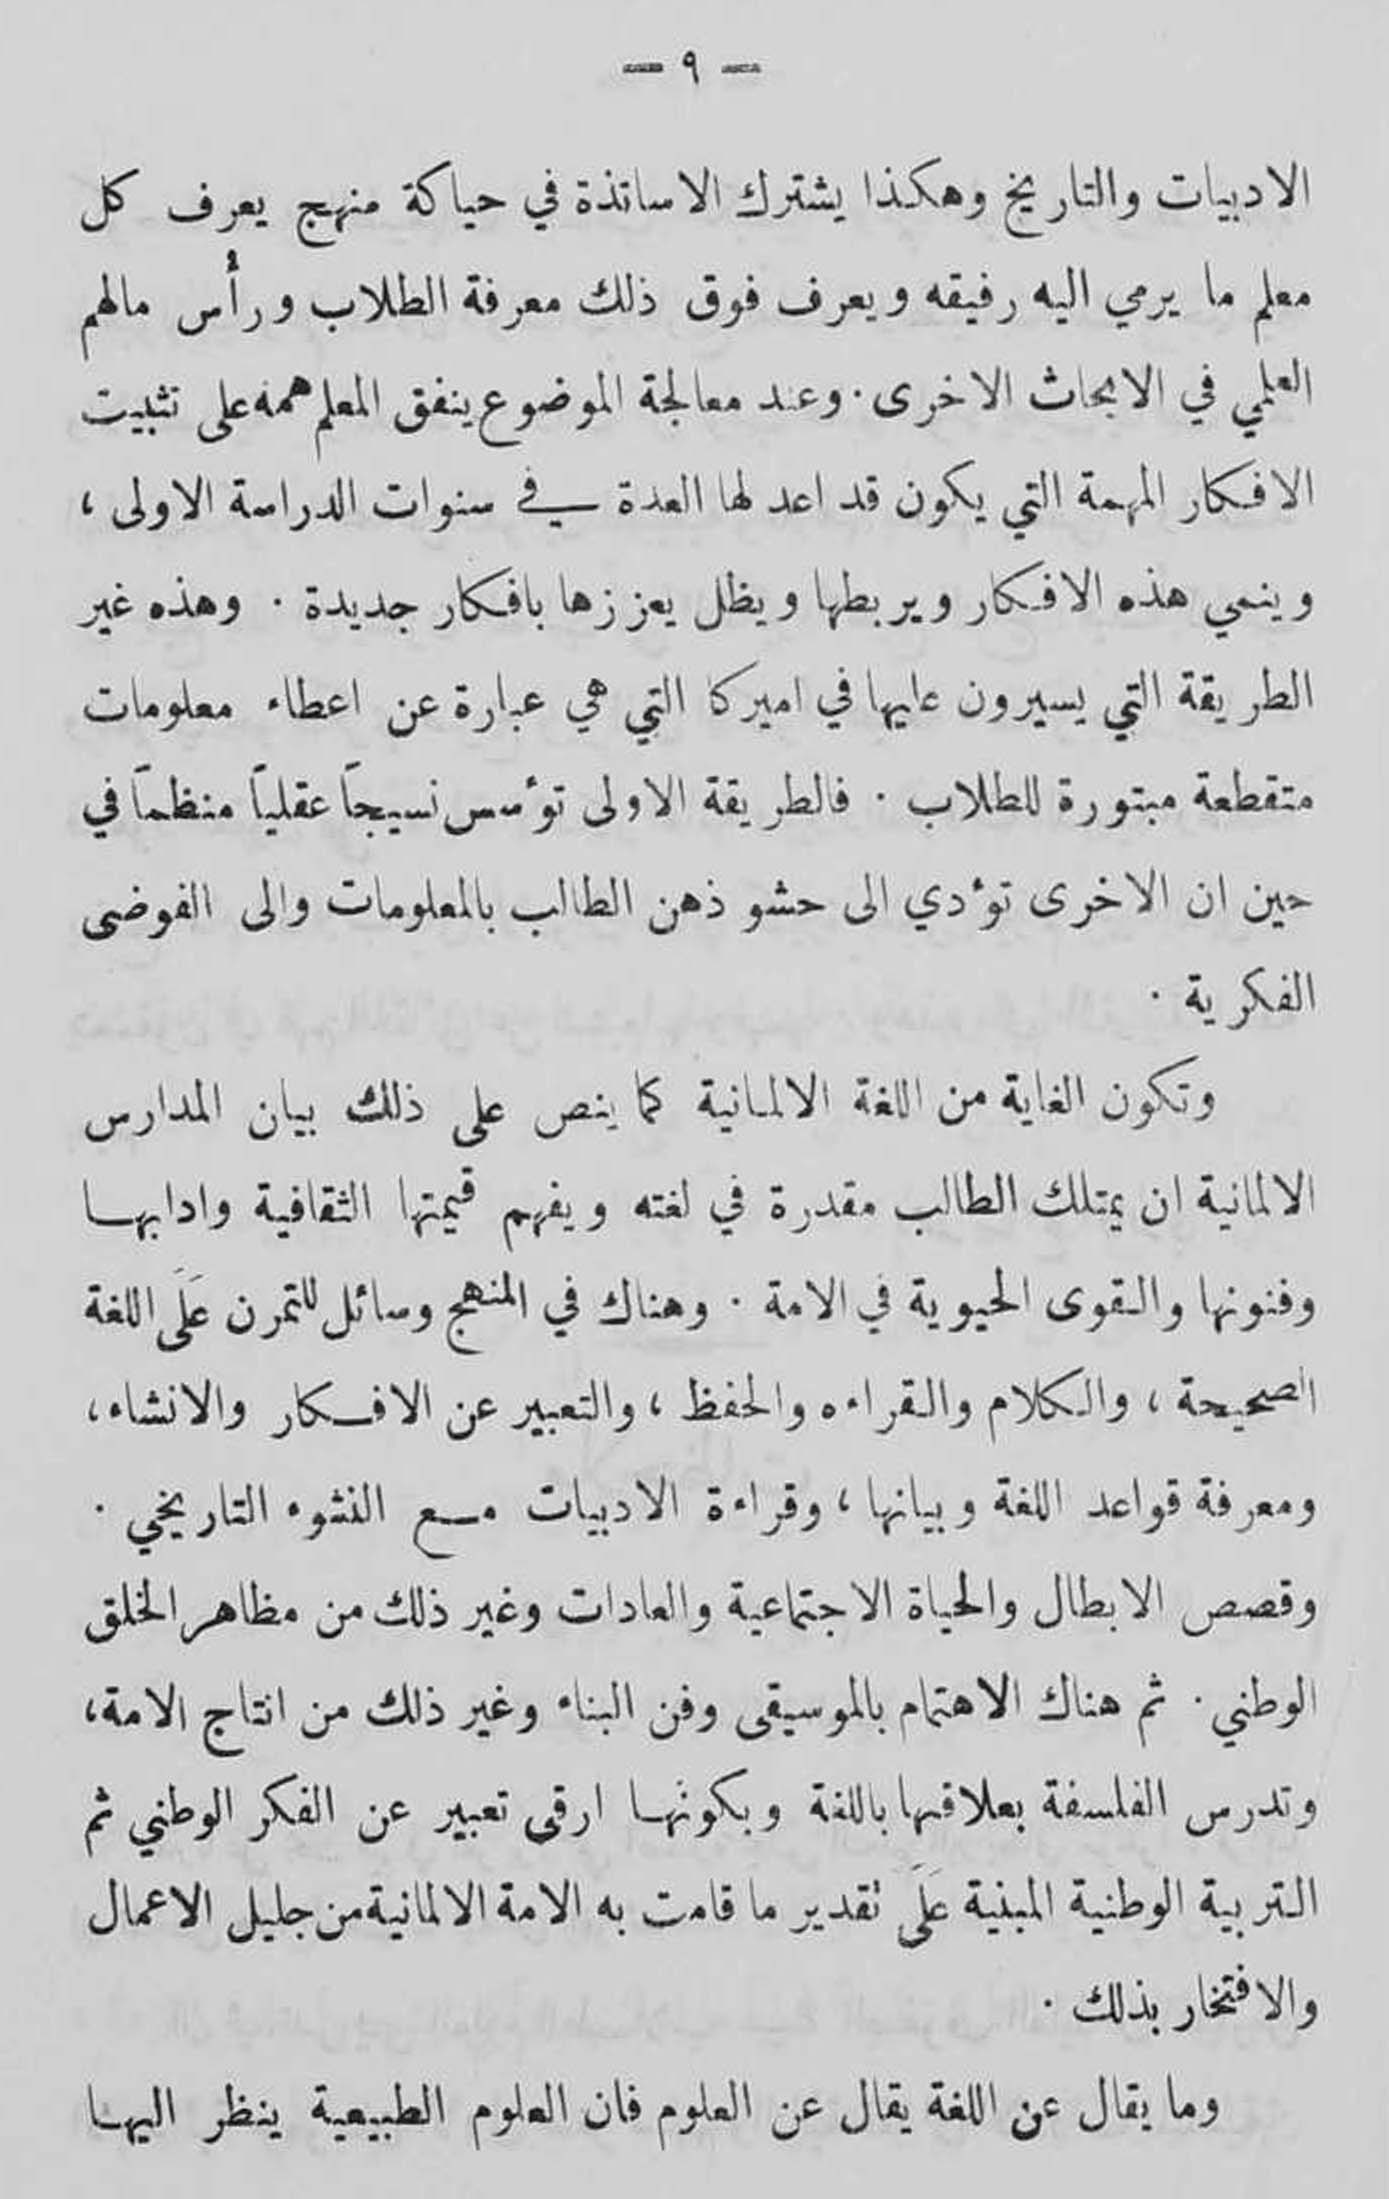 — ٩ —
الادبيات والتاريخ وهكذا يشترك الاساتذة في حياكة منهج يعرف كل
معلم ما يرمي اليه رفيقه ويعرف فوق ذلك معرفة الطلاب ورأس مالهم
العلمي في الابحاث الاخرى . وعند معالجة الموضوع ينفق المعلم همه على تثبيت
الافكار المهمة التي يكون قد اعد لها العدة في سنوات الدراسة الاولى ،
وينمي هذه الافكار ويربطها ويظل يعززها بافكار جديدة . وهذه غير
الطريقة التي يسيرون عليها في اميركا التي هي عبارة عن اعطاء معلومات
متقطعة مبتورة للطلاب . فالطريقة الاولى تؤسس نسيجاً عقلياً منظماً في
حين ان الاخرى تؤدي الى حشو ذهن الطالب بالمعلومات والى الفوضى
الفكرية .
وتكون الغاية من اللغة الالمانية كما ينص على ذلك بيان المدارس
الالمانية ان يمتلك الطالب مقدرة في لغته ويفهم قيمتها الثقافية وادابها
وفنونها والقوى الحيوية في الامة . وهناك في المنهج وسائل للتمرن عَلَى اللغة
الصحيحة ، والكلام والقراءه والحفظ ، والتعبير عن الافكار والانشاء ،
ومعرفة قواعد اللغة وبيانها ، وقراءة الادبيات مع النشوء التاريخي .
وقصص الابطال والحياة الاجتماعية والعادات وغير ذلك من مظاهر الخلق
الوطني . ثم هناك الاهتمام بالموسيقى وفن البناء وغير ذلك من انتاج الامة ،
وتدرس الفلسفة بعلاقتها باللغة وبكونها ارقى تعبير عن الفكر الوطني ثم
التربية الوطنية المبنية عَلَى تقدير ما قامت به الامة الالمانية من جليل الاعمال
والافتخار بذلك .
وما يقال عن اللغة يقال عن العلوم فان العلوم الطبيعية ينظر اليها